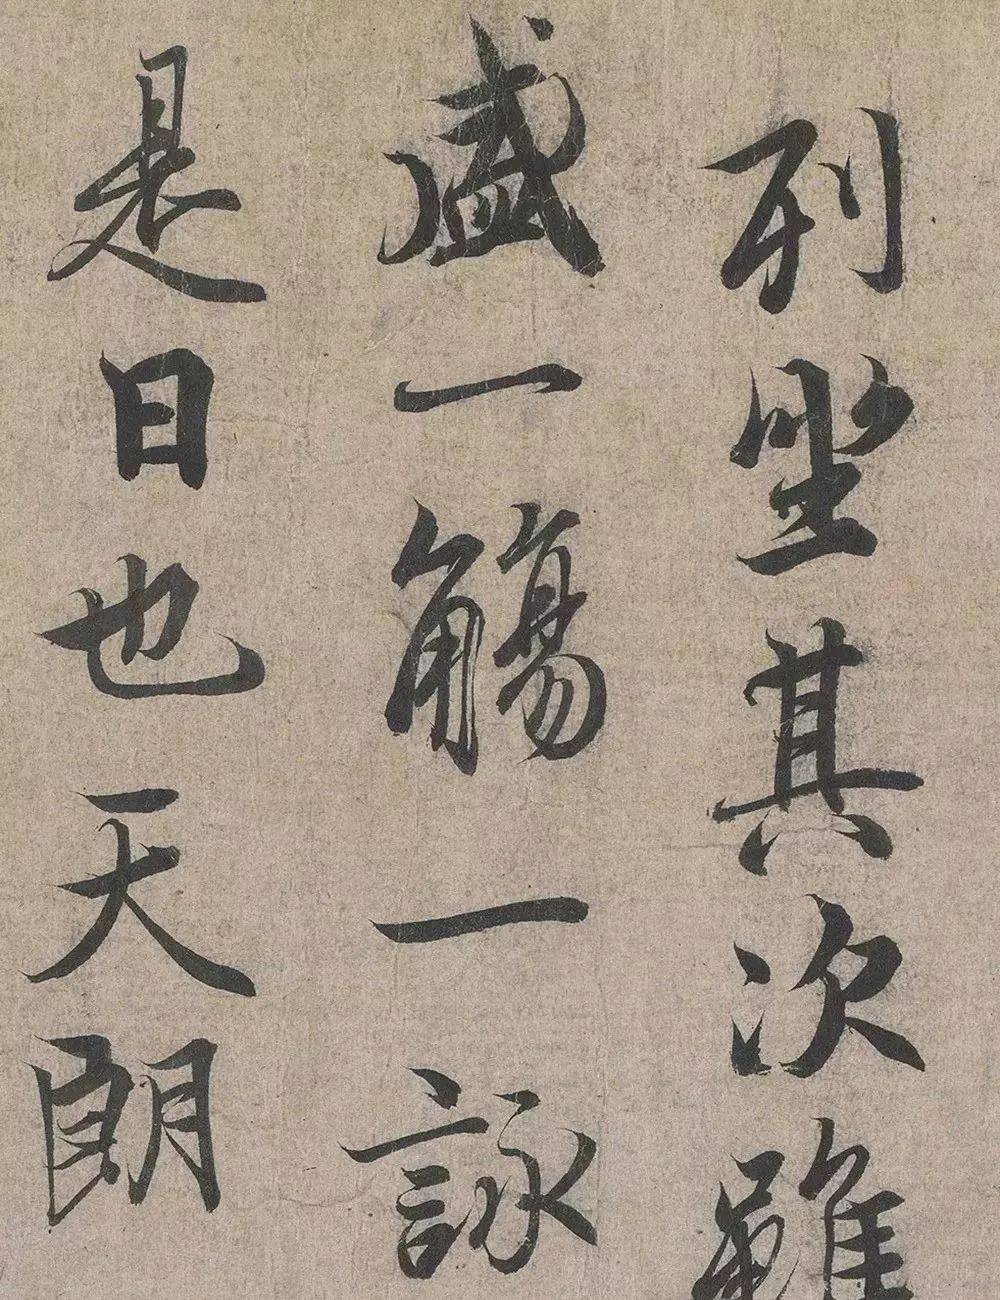 列坐其次雖
盛一觴一詠
是日也天朗